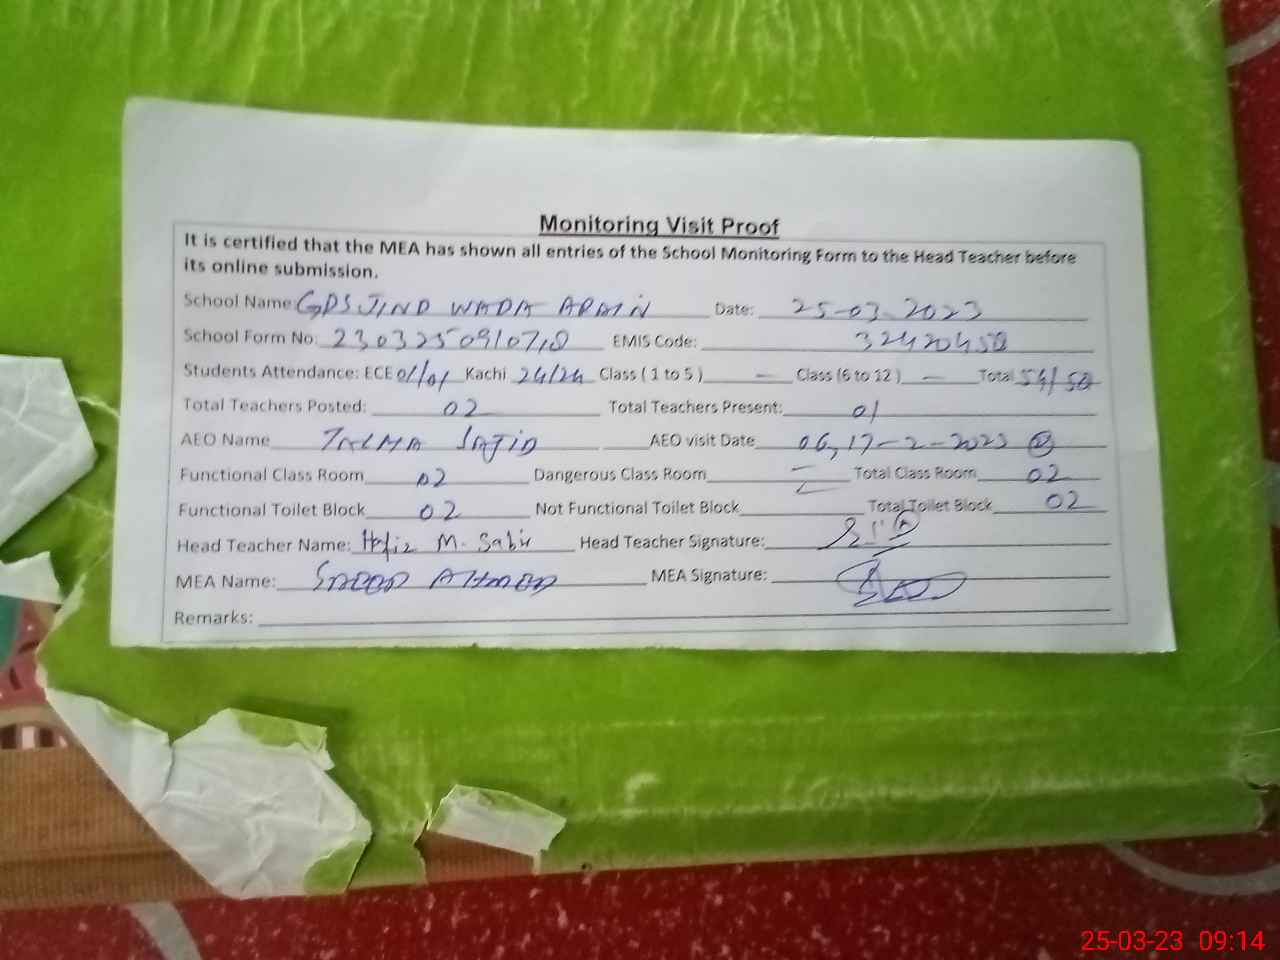 Monitoring Visit Proof
It is certified that the MEA has shown all entries of the School Monitoring Form to the Head Teacher before
its online submission.
School Name: GPS JIND WADA ARAIN Date: 25-03-2023
School Form No: EMIS Code: 32420458
Students Attendance: ECE 01/01 Kachi 24/24 Class ( 1 to 5 ) — Class (6 to 12 ) — Total 54/58
Total Teachers Posted: 02 Total Teachers Present: 01
AEO Name SAJID AEO visit Date 06, 17-2-2023
Functional Class Room 02 Dangerous Class Room Total Class Room 02
Functional Toilet Block 02 Not Functional Toilet Block Total Toilet Block 02
Head Teacher Name: Hafiz M. Sabir Head Teacher Signature:
MEA Name: SAEED AHMED MEA Signature:
Remarks:
25-03-23 09:14